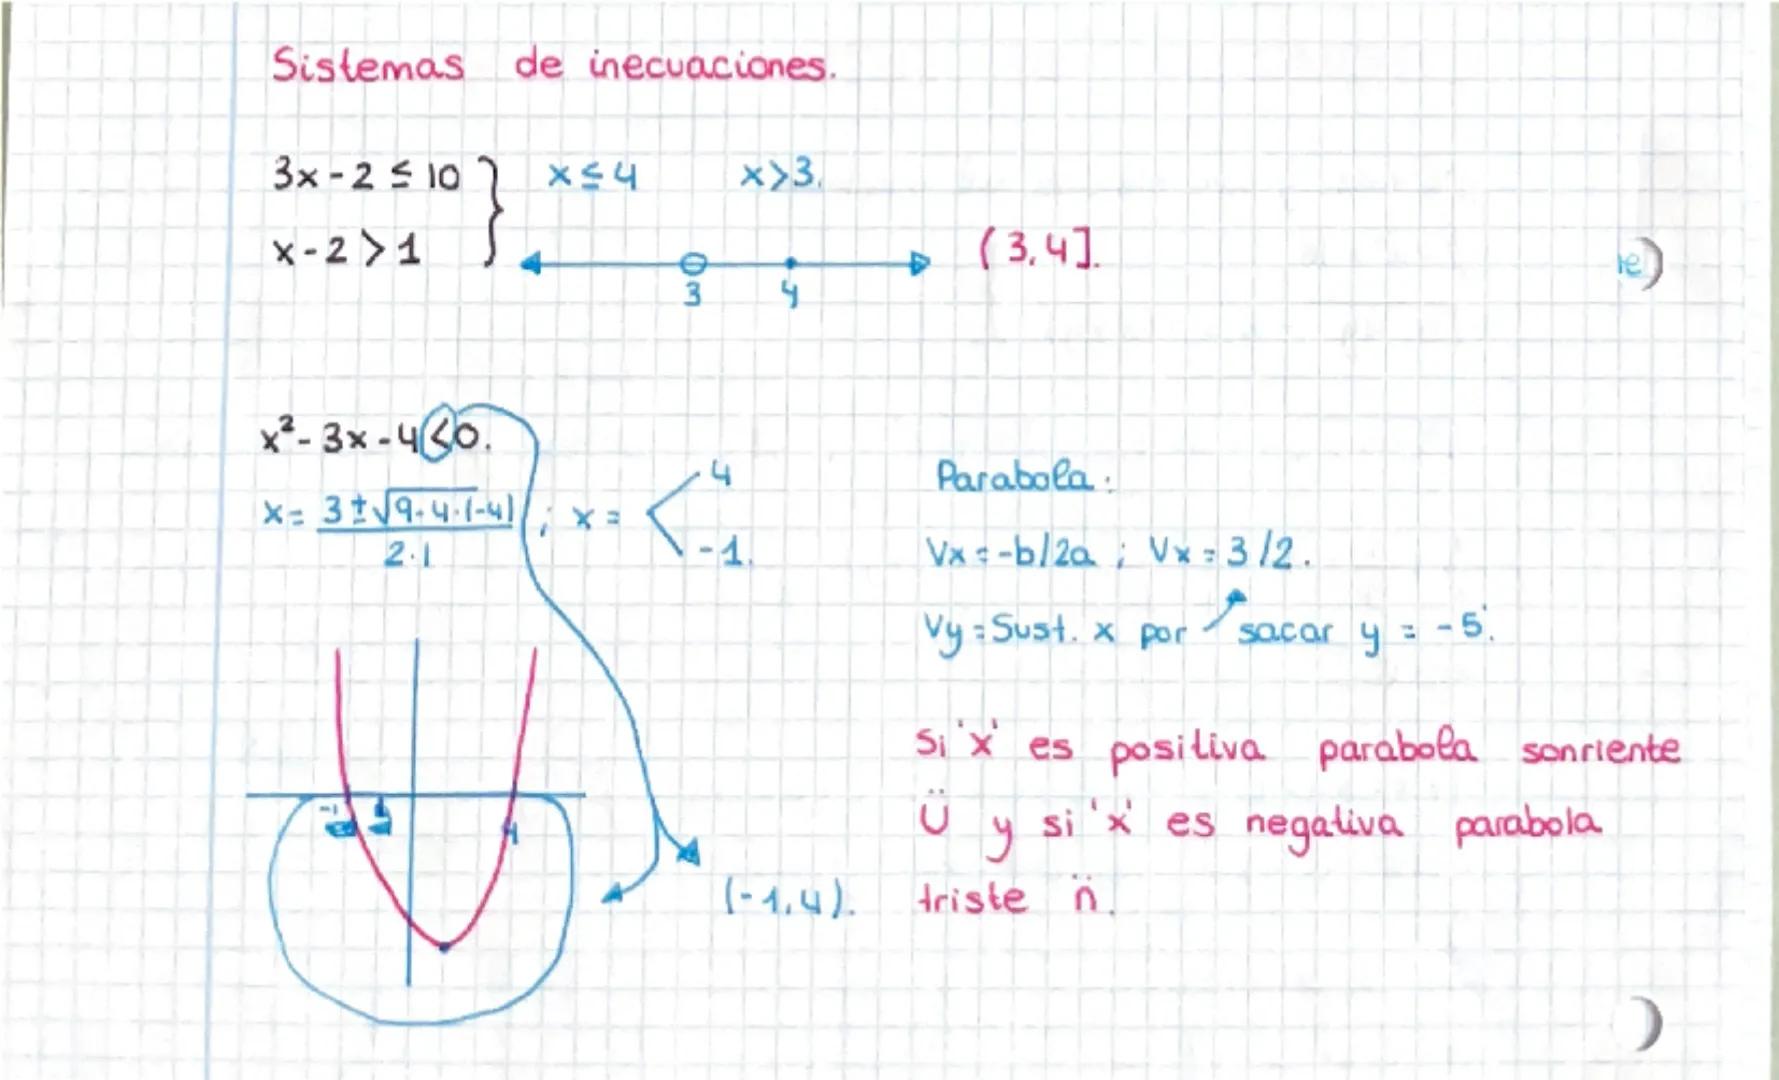 Sistemas de inecuaciones.
3x - 2 ≤ 10 } x ≤ 4 x > 3.
x - 2 > 1
3 4
(3,4].
x² - 3x - 4 < 0.
x = 3 ± √9 - 4 · (-4) / 2 · 1 ; x = 4
-1.
-1 4
(-1,4).
Parabola:
Vx = -b/2a ; Vx = 3/2.
Vy = Sust. x por sacar y = -5.
Si 'x' es positiva parabola sonriente
Ü y si 'x' es negativa parabola
triste n̈.